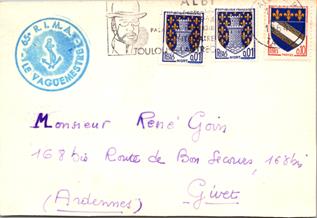 65e R.I.MA
LE VAGUEMESTRE
ALBI
TOULOUSE-LAUTREC
0,01
0,01
0,10
Monsieur René Goin
168 bis Route de Bon Secours, 168 bis
(Ardennes) Givet